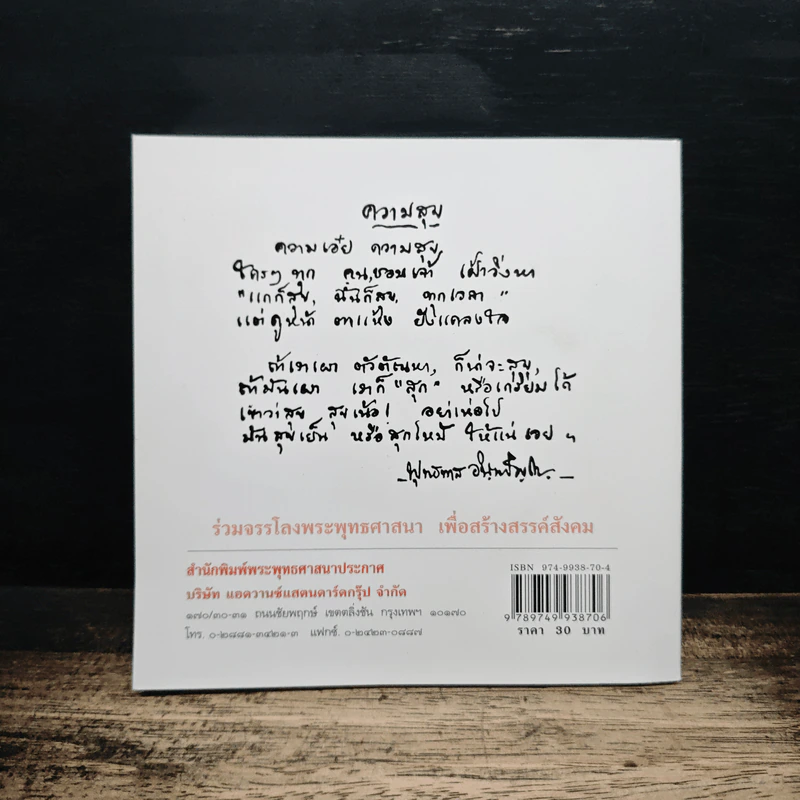 ความสุข
ความเอ๋ย ความสุข
ใครๆ ทุก คน, ชอบเจ้า เฝ้าวิ่งหา
"แกก็สุข, ฉันก็สุข, ทุกเวลา"
แต่ดูหน้า ตาแห้ง ยังแคลงใจ
ถ้าเราเผา ตัวตัณหา, ก็น่าจะสุข,
ถ้ามันเผา เราก็ "สุก" หรือเกรียมได้
เขาว่าสุข สุขเน้อ! อย่าเห่อไป
มันสุขเย็น หรือสุกไหม้ ให้แน่เอย ฯ
พุทธทาส อินฺทปัญฺโญ
ร่วมจรรโลงพระพุทธศาสนา เพื่อสร้างสรรค์สังคม
สำนักพิมพ์พระพุทธศาสนาประกาศ
บริษัท แอดวานซ์แสตนดาร์ดกรุ๊ป จำกัด
๑๗๐/๓๐-๓๑ ถนนชัยพฤกษ์ เขตตลิ่งชัน กรุงเทพฯ ๑๐๑๗๐
โทร. ๐-๒๘๘๑-๓๔๒๑-๓ แฟกซ์. ๐-๒๔๒๓-๐๘๘๗
ISBN 974-9938-70-4
9 789749 938706
ราคา 30 บาท